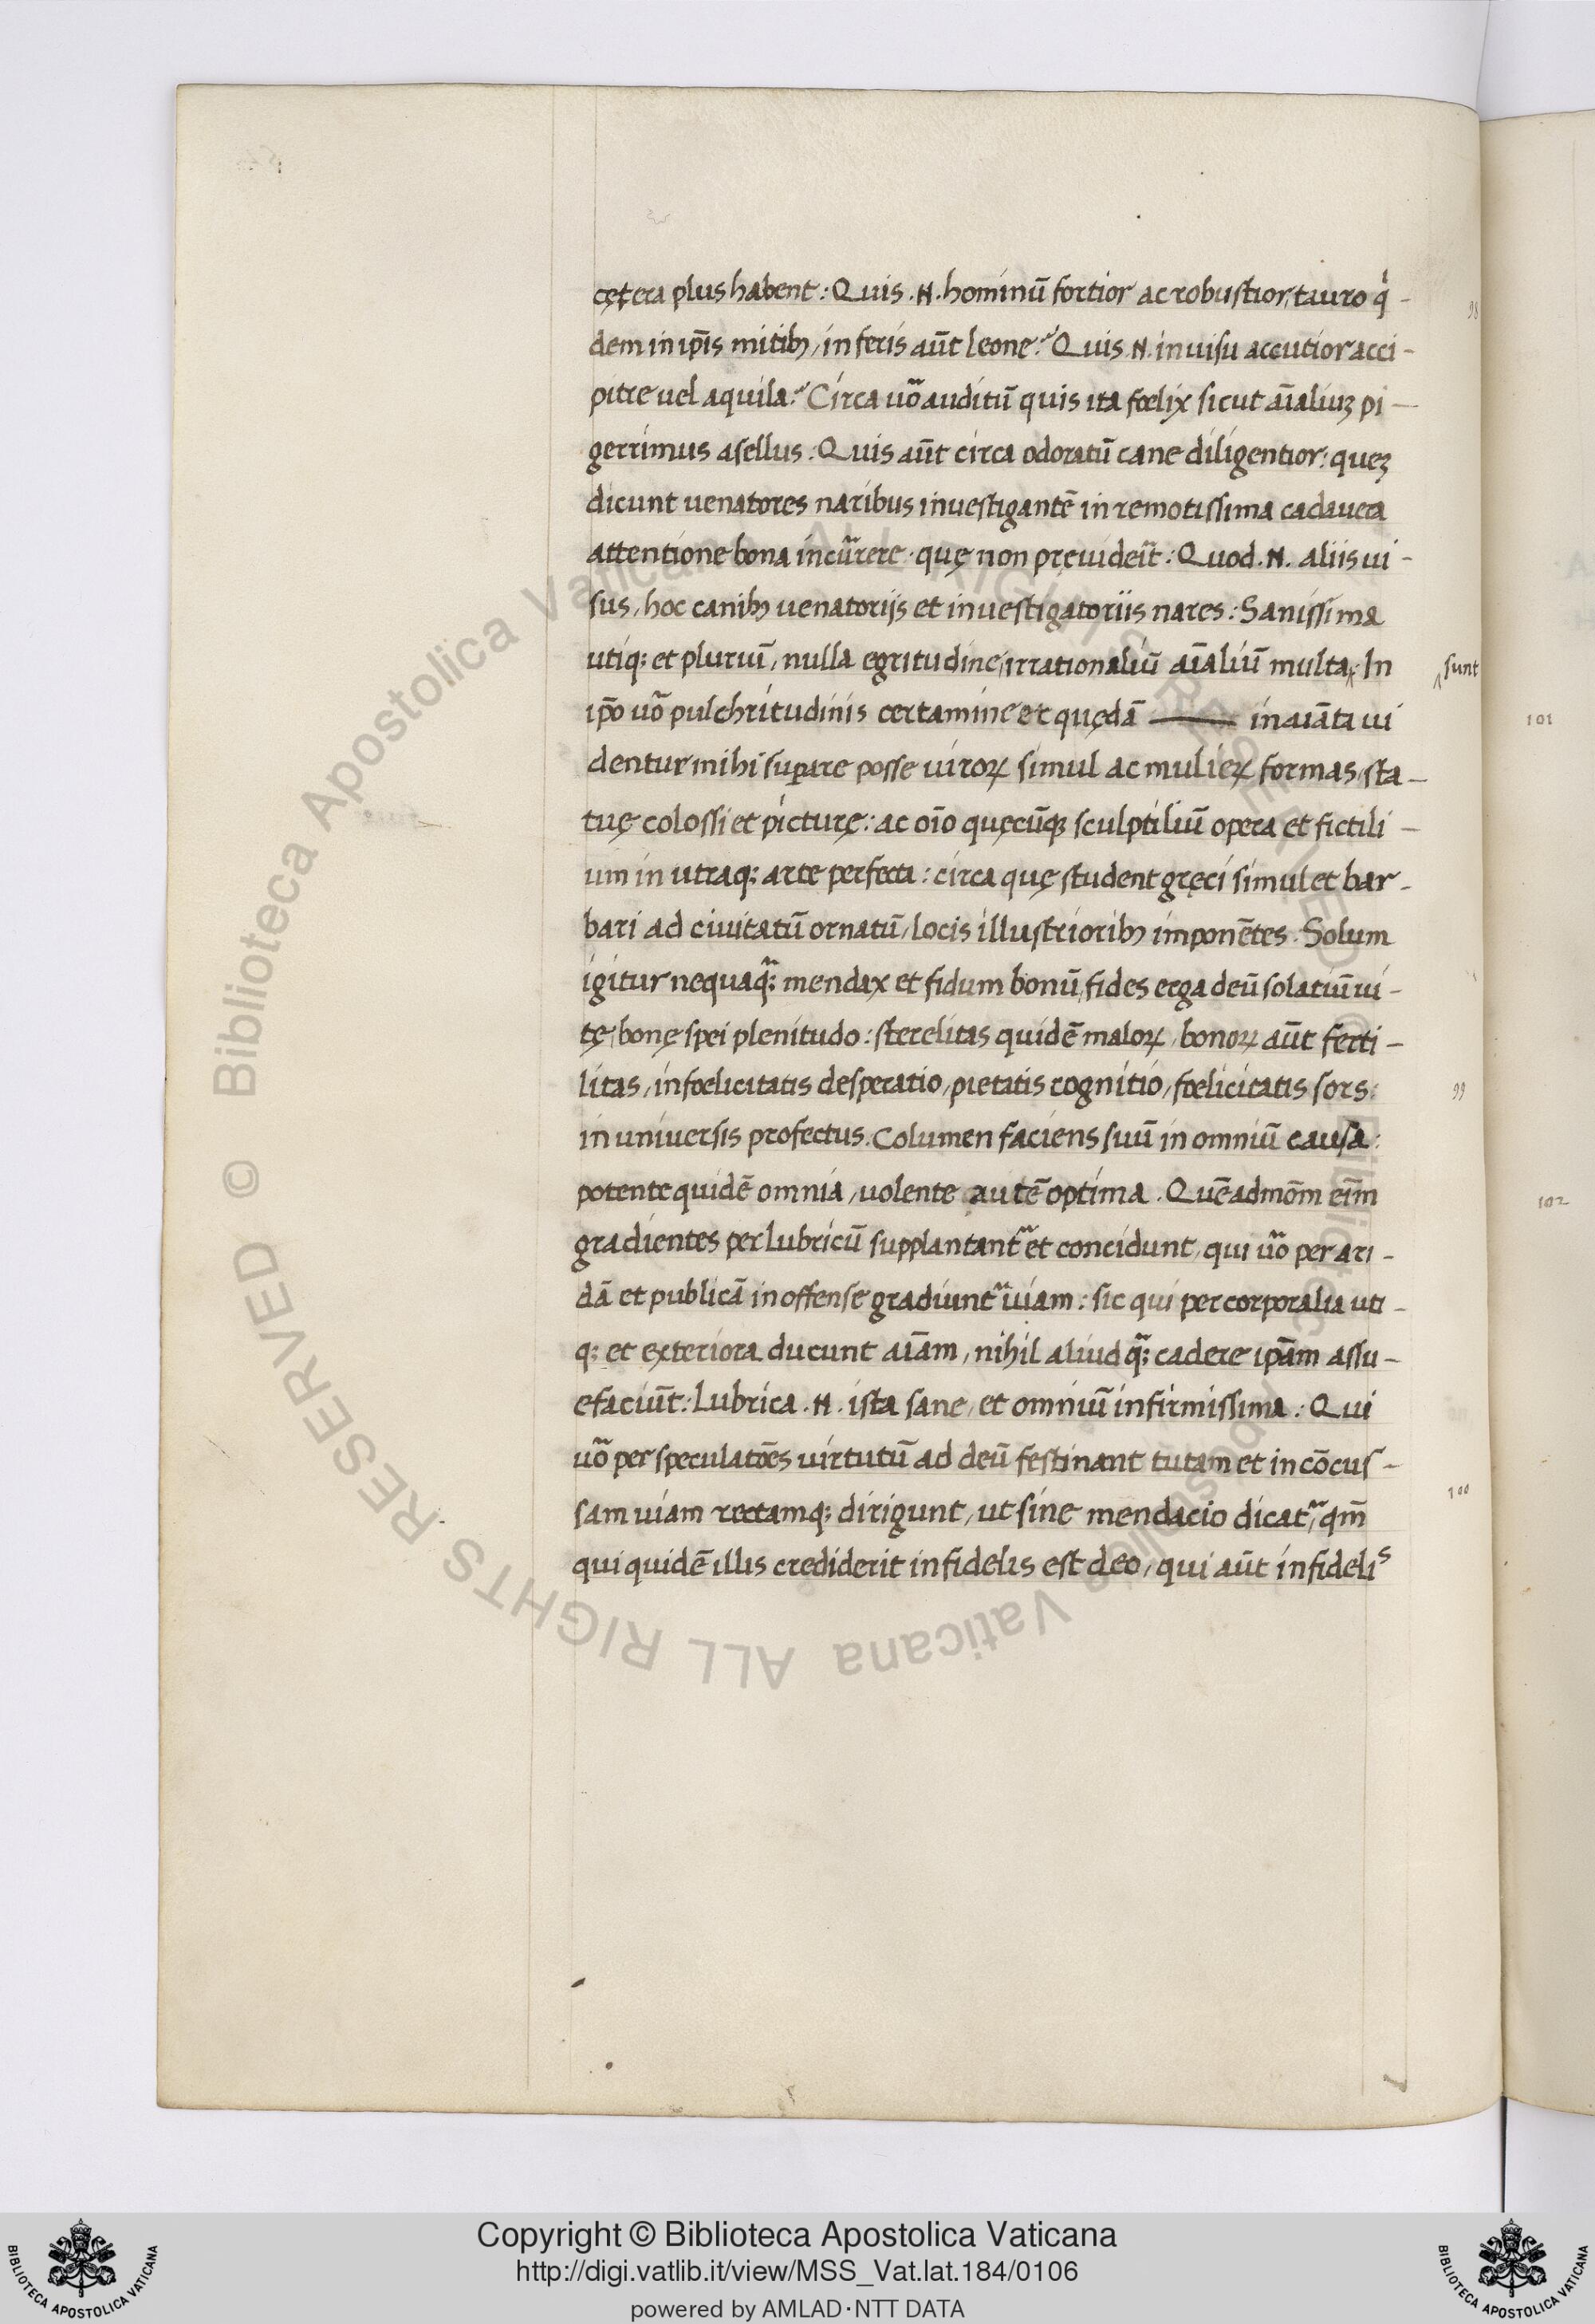 cętera plus habent: Quis .N. hominū fortior ac robustior, tauro q̇-
dem in ip̄is mitib; in feris aūt leone? Quis .N. in uisu accutior acci-
pitre uel aquila? Circa uō auditū quis ita fœlix sicut aīaliuꝫ pi-
gerrimus asellus: Quis aūt circa odoratū cane diligentior: queꝫ
dicunt uenatores naribus inuestigantē in remotissima cadauera
attentione bona incurrere quę non pręuideīt: Quod .N. aliis ui-
sus, hoc canib; uenatorijs et inuestigatoriis nares: Sanissima
utiq; et plurīū, nulla egritudine, irrationaliū aīaliū multa‸ In ‸sunt
ip̄o uō pulchritudinis certamine et quędā inaīata ui
dentur mihi suꝑare posse uiroꝝ simul ac mulieꝝ formas, sta-
tuę colossi et picturę: ac oīo quęcūqꝫ sculptiliū opera et fictili-
um in utraq; arte perfecta: circa quę student gręci simul et bar-
bari ad ciuitatū ornatū, locis illustriorib; imponētes. Solum
igitur nequaq̄; mendax et fidum bonū, fides erga deū solatiū ui-
tę, bonę spei plenitudo: sterelitas quidē maloꝝ, bonoꝝ aūt ferti-
litas, infœlicitatis desperatio, pietatis cognitio, fœlicitatis sors:
in uniuersis profectus. Columen faciens suū in omniū causa:
potente quidē omnia, uolente autē optima. Quēadmōm eīm
gradientes per lubricū supplantant᷑ et concidunt, qui uō per ari-
dā et publicā inoffense gradiunt᷑ uiam: sic qui per corporalia uti-
q; et exteriora ducunt aīam, nihil aliud q̄; cadere ip̄am assu-
efaciūt: Lubrica .N. ista sane, et omniū infirmissima: Qui
uō per speculatōes uirtutū ad deū festinant tutam et incōcus-
sam uiam rectamq; dirigunt, ut sine mendacio dicat᷑, qm̄
qui quidē illis crediderit infidelis est deo, qui aūt infidelis
98
99
100
101
102
© Biblioteca Apostolica Vaticana ALL RIGHTS RESERVED
Copyright © Biblioteca Apostolica Vaticana
http://digi.vatlib.it/view/MSS_Vat.lat.184/0106
powered by AMLAD·NTT DATA
BIBLIOTECA APOSTOLICA VATICANA
BIBLIOTECA APOSTOLICA VATICANA